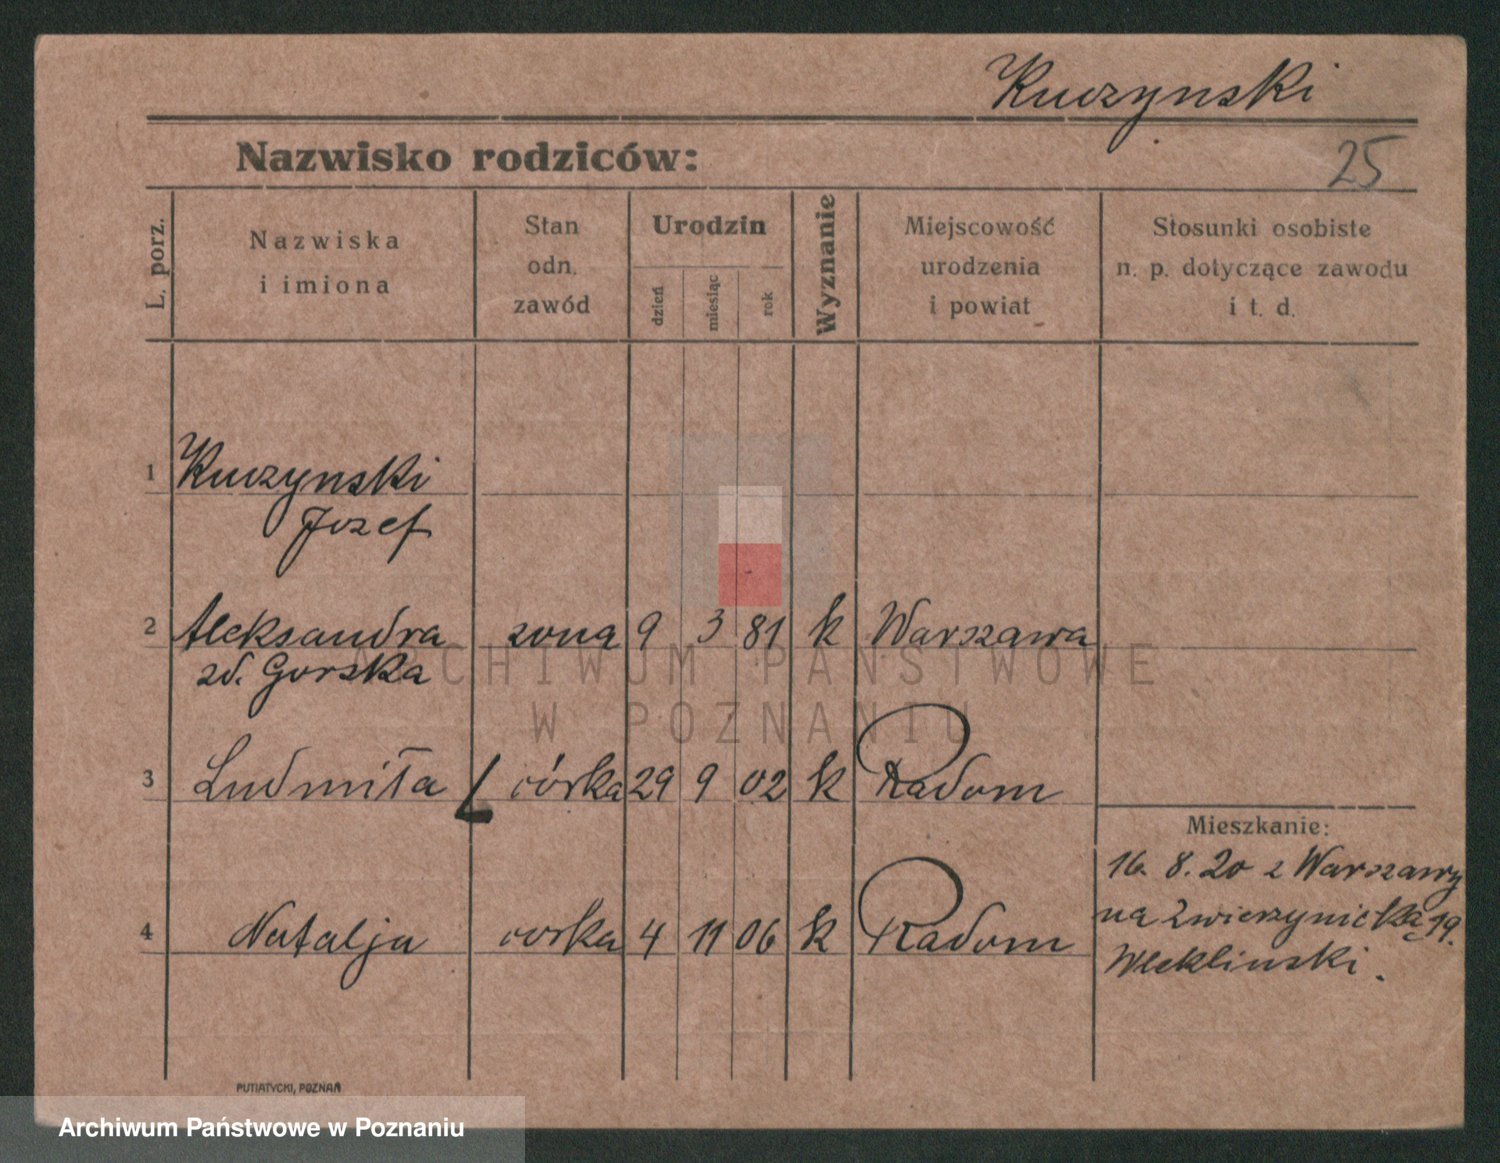 Kuczynski
Nazwisko rodziców:
25
L. porz.
Nazwiska
i imiona
Stan
odn.
zawód
Urodzin
dzień
miesiąc
rok
Wyznanie
Miejscowość
urodzenia
i powiat
Stosunki osobiste
n. p. dotyczące zawodu
i t. d.
1 Kuczynski
Jozef
2 Aleksandra zona 9 3 81 k Warszawa
zd. Gorska
3 Ludmiła córka 29 9 02 k Radom
4 Natalja corka 4 11 06 k Radom
Mieszkanie:
16. 8. 20 z Warszawy
na Zwierzyniecką 19.
ARCHIWUM PAŃSTWOWE
W POZNANIU
PUTIATYCKI, POZNAŃ
Archiwum Państwowe w Poznaniu